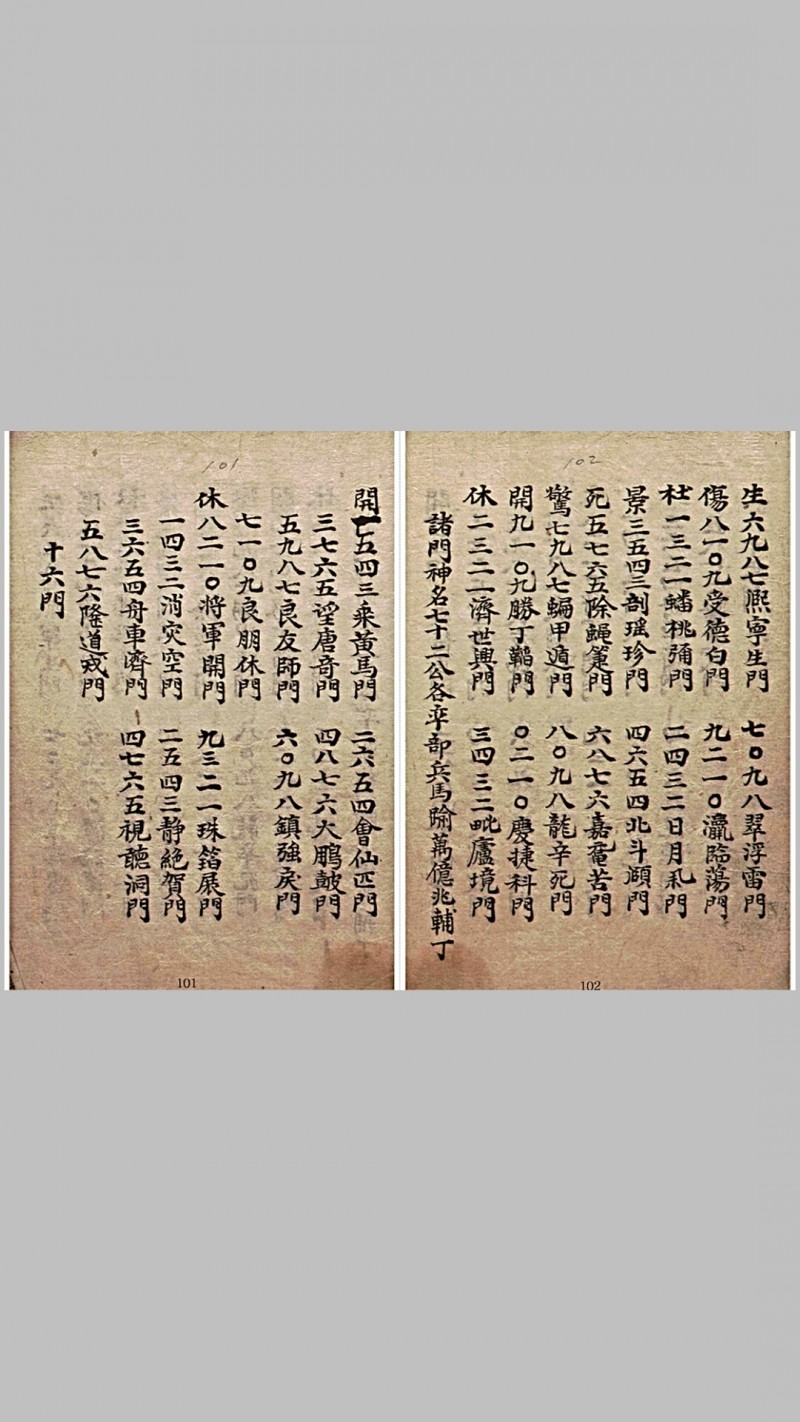 101
開亡五四三乘黃馬門 二六五四會仙匹門
三七六五望唐奇門 四八七六大鵬鼓門
五九八七良友師門 六〇九八鎮強戾門
七一〇九良朋休門
休八二一〇將軍開門 九三二一珠箔展門
一四三二消灾空門 二五四三靜絕賀門
三六五四舟車濟門 四七六五視聽洞門
五八七六隆道戎門
十六門
101
102
生六九八七熙寧生門 七〇九八翠浮雷門
傷八一〇九受德白門 九二一〇瀛臨蕩門
杜一三二一蟠桃彌門 二四三二日月乑門
景三五四三剖瑶珍門 四六五四北斗頋門
死五七六五除蝇箑門 六八七六嘉苦門
驚七九八七蝙甲遁門 八〇九八龍辛死門
開九一〇九勝丁鞱門 〇二一〇慶捷科門
休二三二一濟世興門 三四三二毗廬境門
諸門神名七十二公各卒部兵馬隃萬億兆輔丁
102